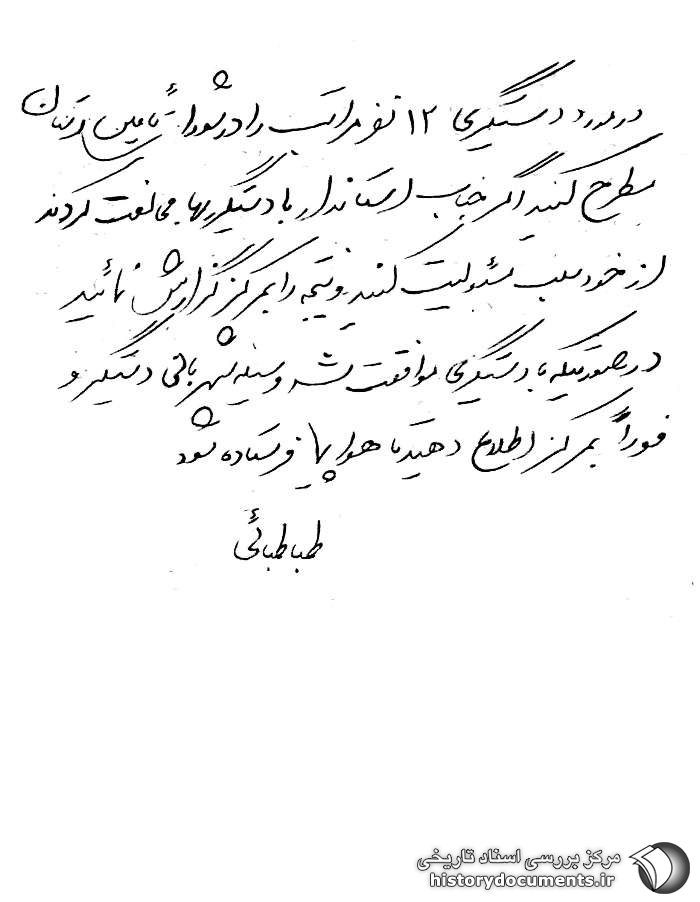 در مورد دستگیری ۱۲ نفر مراتب را در شورای تأمین استان
مطرح کنید اگر جناب استاندار با دستگیریها مخالفت کردند
از خود سلب مسئولیت کنید و نتیجه را بمرکز گزارش نمائید
در صورتیکه با دستگیری موافقت شد وسیله شهربانی دستگیر و
فوراً بمرکز اطلاع دهید تا هواپیما فرستاده شود
طباطبائی
مرکز بررسی اسناد تاریخی
historydocuments.ir